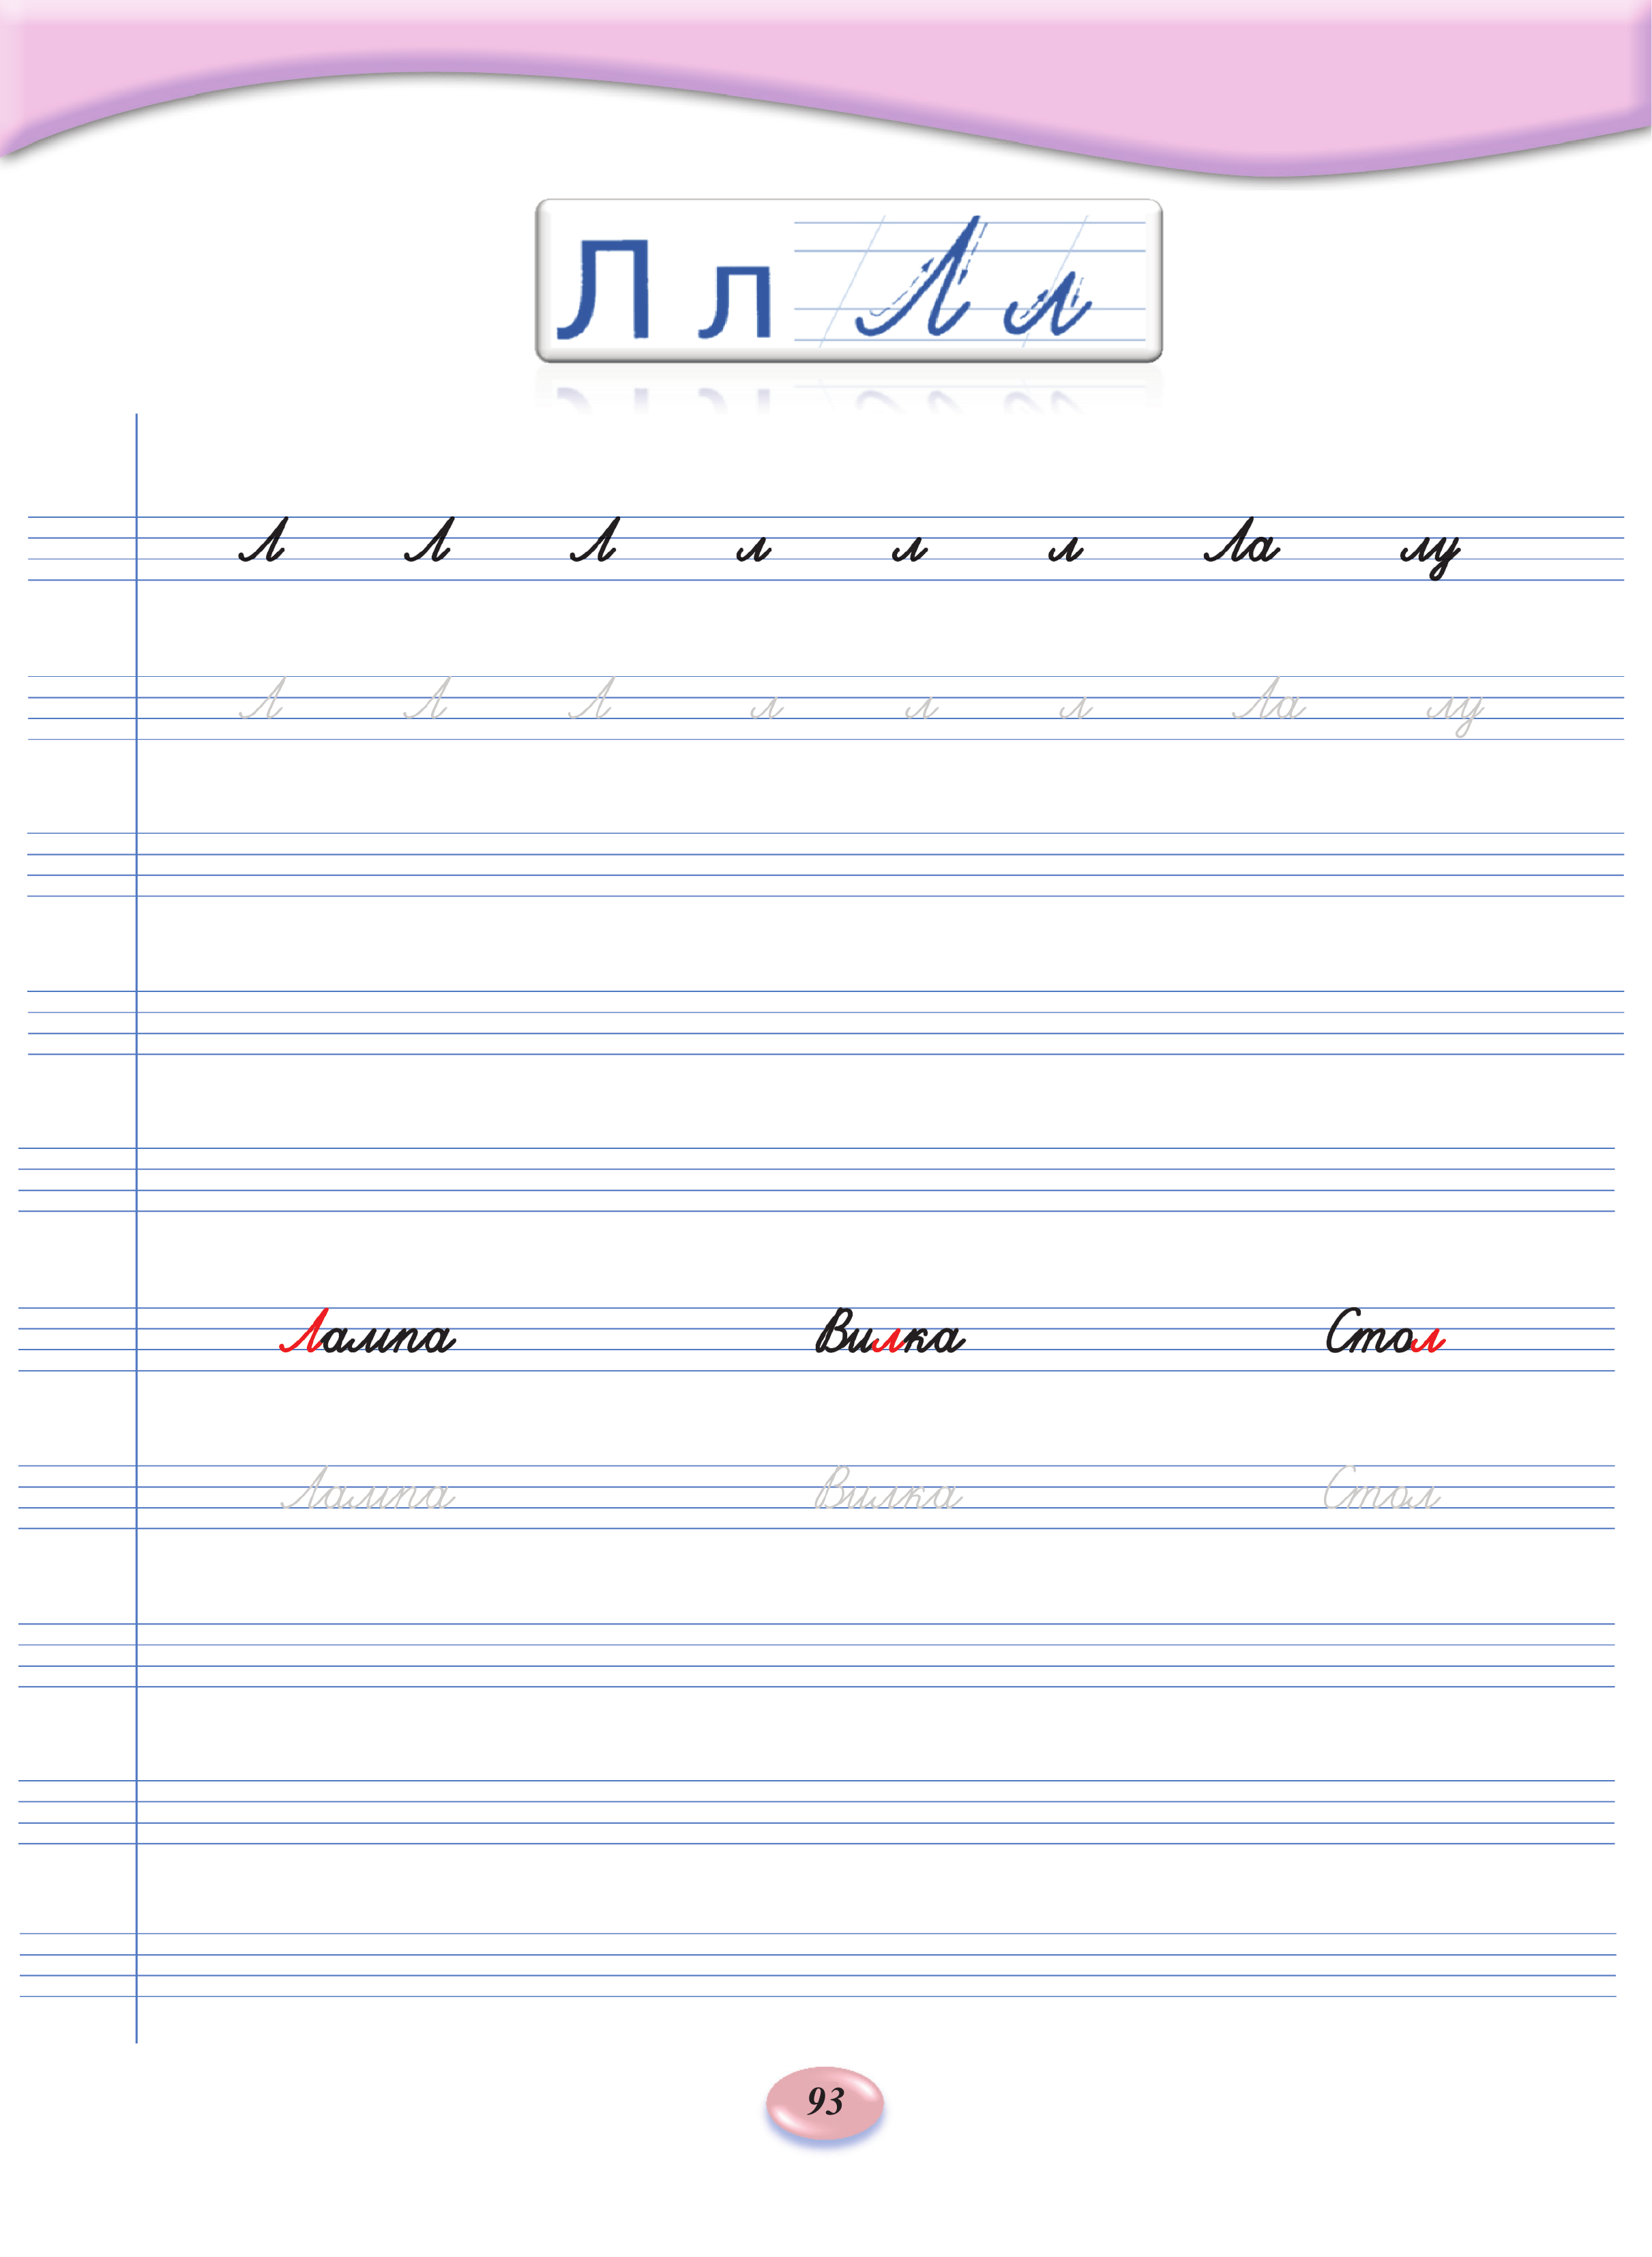 Л л Л л
Л Л Л л л л Ла лу
Л Л Л л л л Ла лу
Лампа Вилка Стол
Лампа Вилка Стол
93